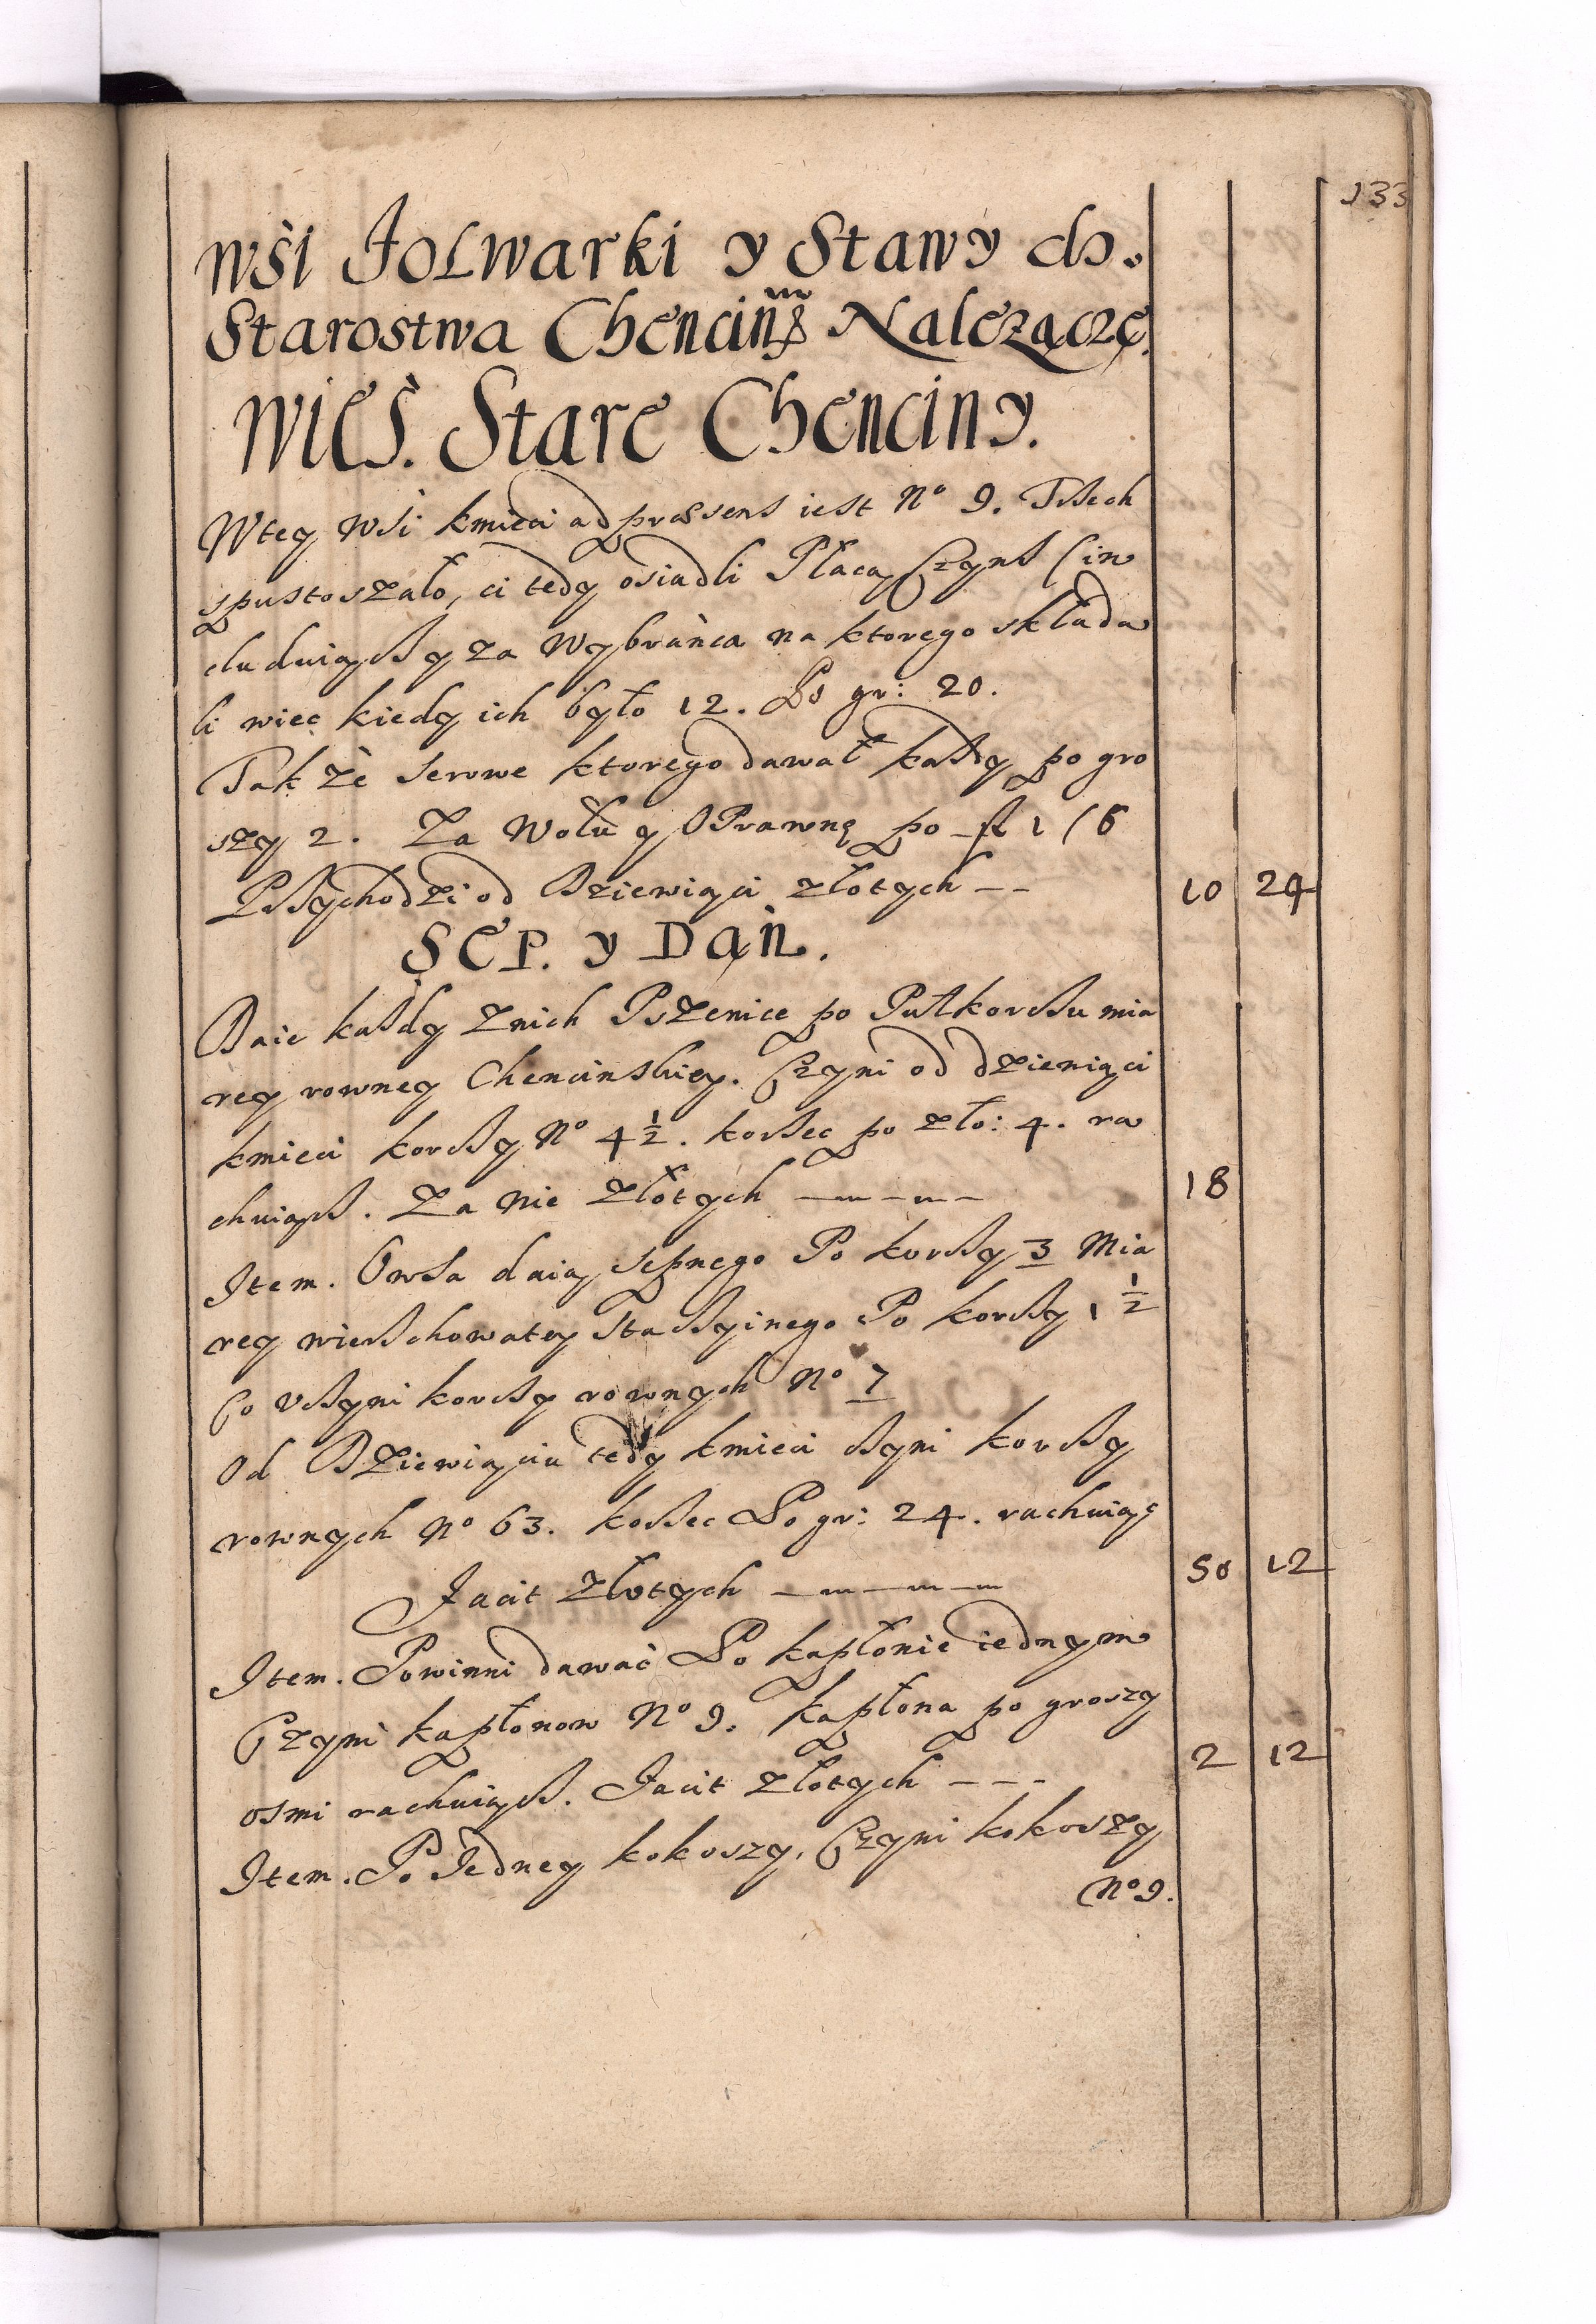 133
Wśi Folwarki y Stawy do.
Starostwa Chencinṡ Należączę.
Wieś. Stare Chenciny.
Wtey Wśi kmieci ad præsens iest No 9. Trzech
spustoszało, ci tedy osiadli Płacą Czynsz (in
cluduiąc y za Wybráńca na ktorego składa
li więc kiedy ich było 12. Po gr: 20.
Tak że Serowe ktorego dawał każdy po gro
szy 2. Za Wołu y OPrawnę po fl 1 /6
Przychodzi od Dziewiąci złotych - -
SEP. y Dań.
Daie każdy znich Pszenice po Pułkorczu mia
rey rowney Chencinskiey. Czyni od dziewiąci
kmieci korczy No 4½. korzec po zło: 4. ra
chuiąc. Za nie złotych
Item. Owsa daią sepnego Po korczy 3 Mia
rey wierzchowatey Stacyinego Po korczy 1½
Co uczyni korczy rownych No 7
Od Dziewiąciu tedy kmieci czyni korczy
rownych No 63. korzec Po gr: 24. rachuiąc
Facit złotych
Item. Powinni dawać Po kapłonie iednym
Czyni kapłonow No 9. kapłona po groszy
osmi rachuiąc. Facit złotych - - -
Item. Po Jedney kokoszy, Czyni kokoszy
No 9.
10 24
18
50 12
2 12